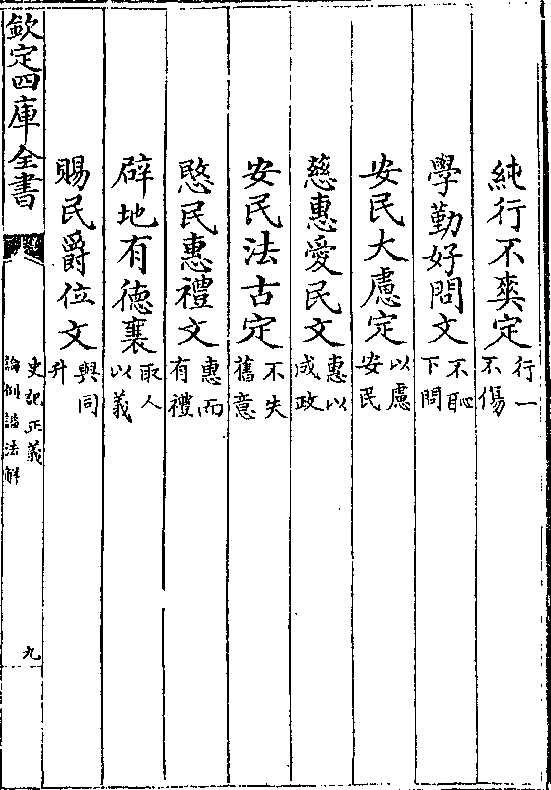 純行不爽定行一不傷
學勤好問文不恥下問
安民大慮定以慮安民
慈惠愛民文惠以成政
安民法古定不失舊意
愍民惠禮文惠而有禮
辟地有德襄取人以義
賜民爵位文與同升
欽定四庫全書
史記正義
論例諡法解
九